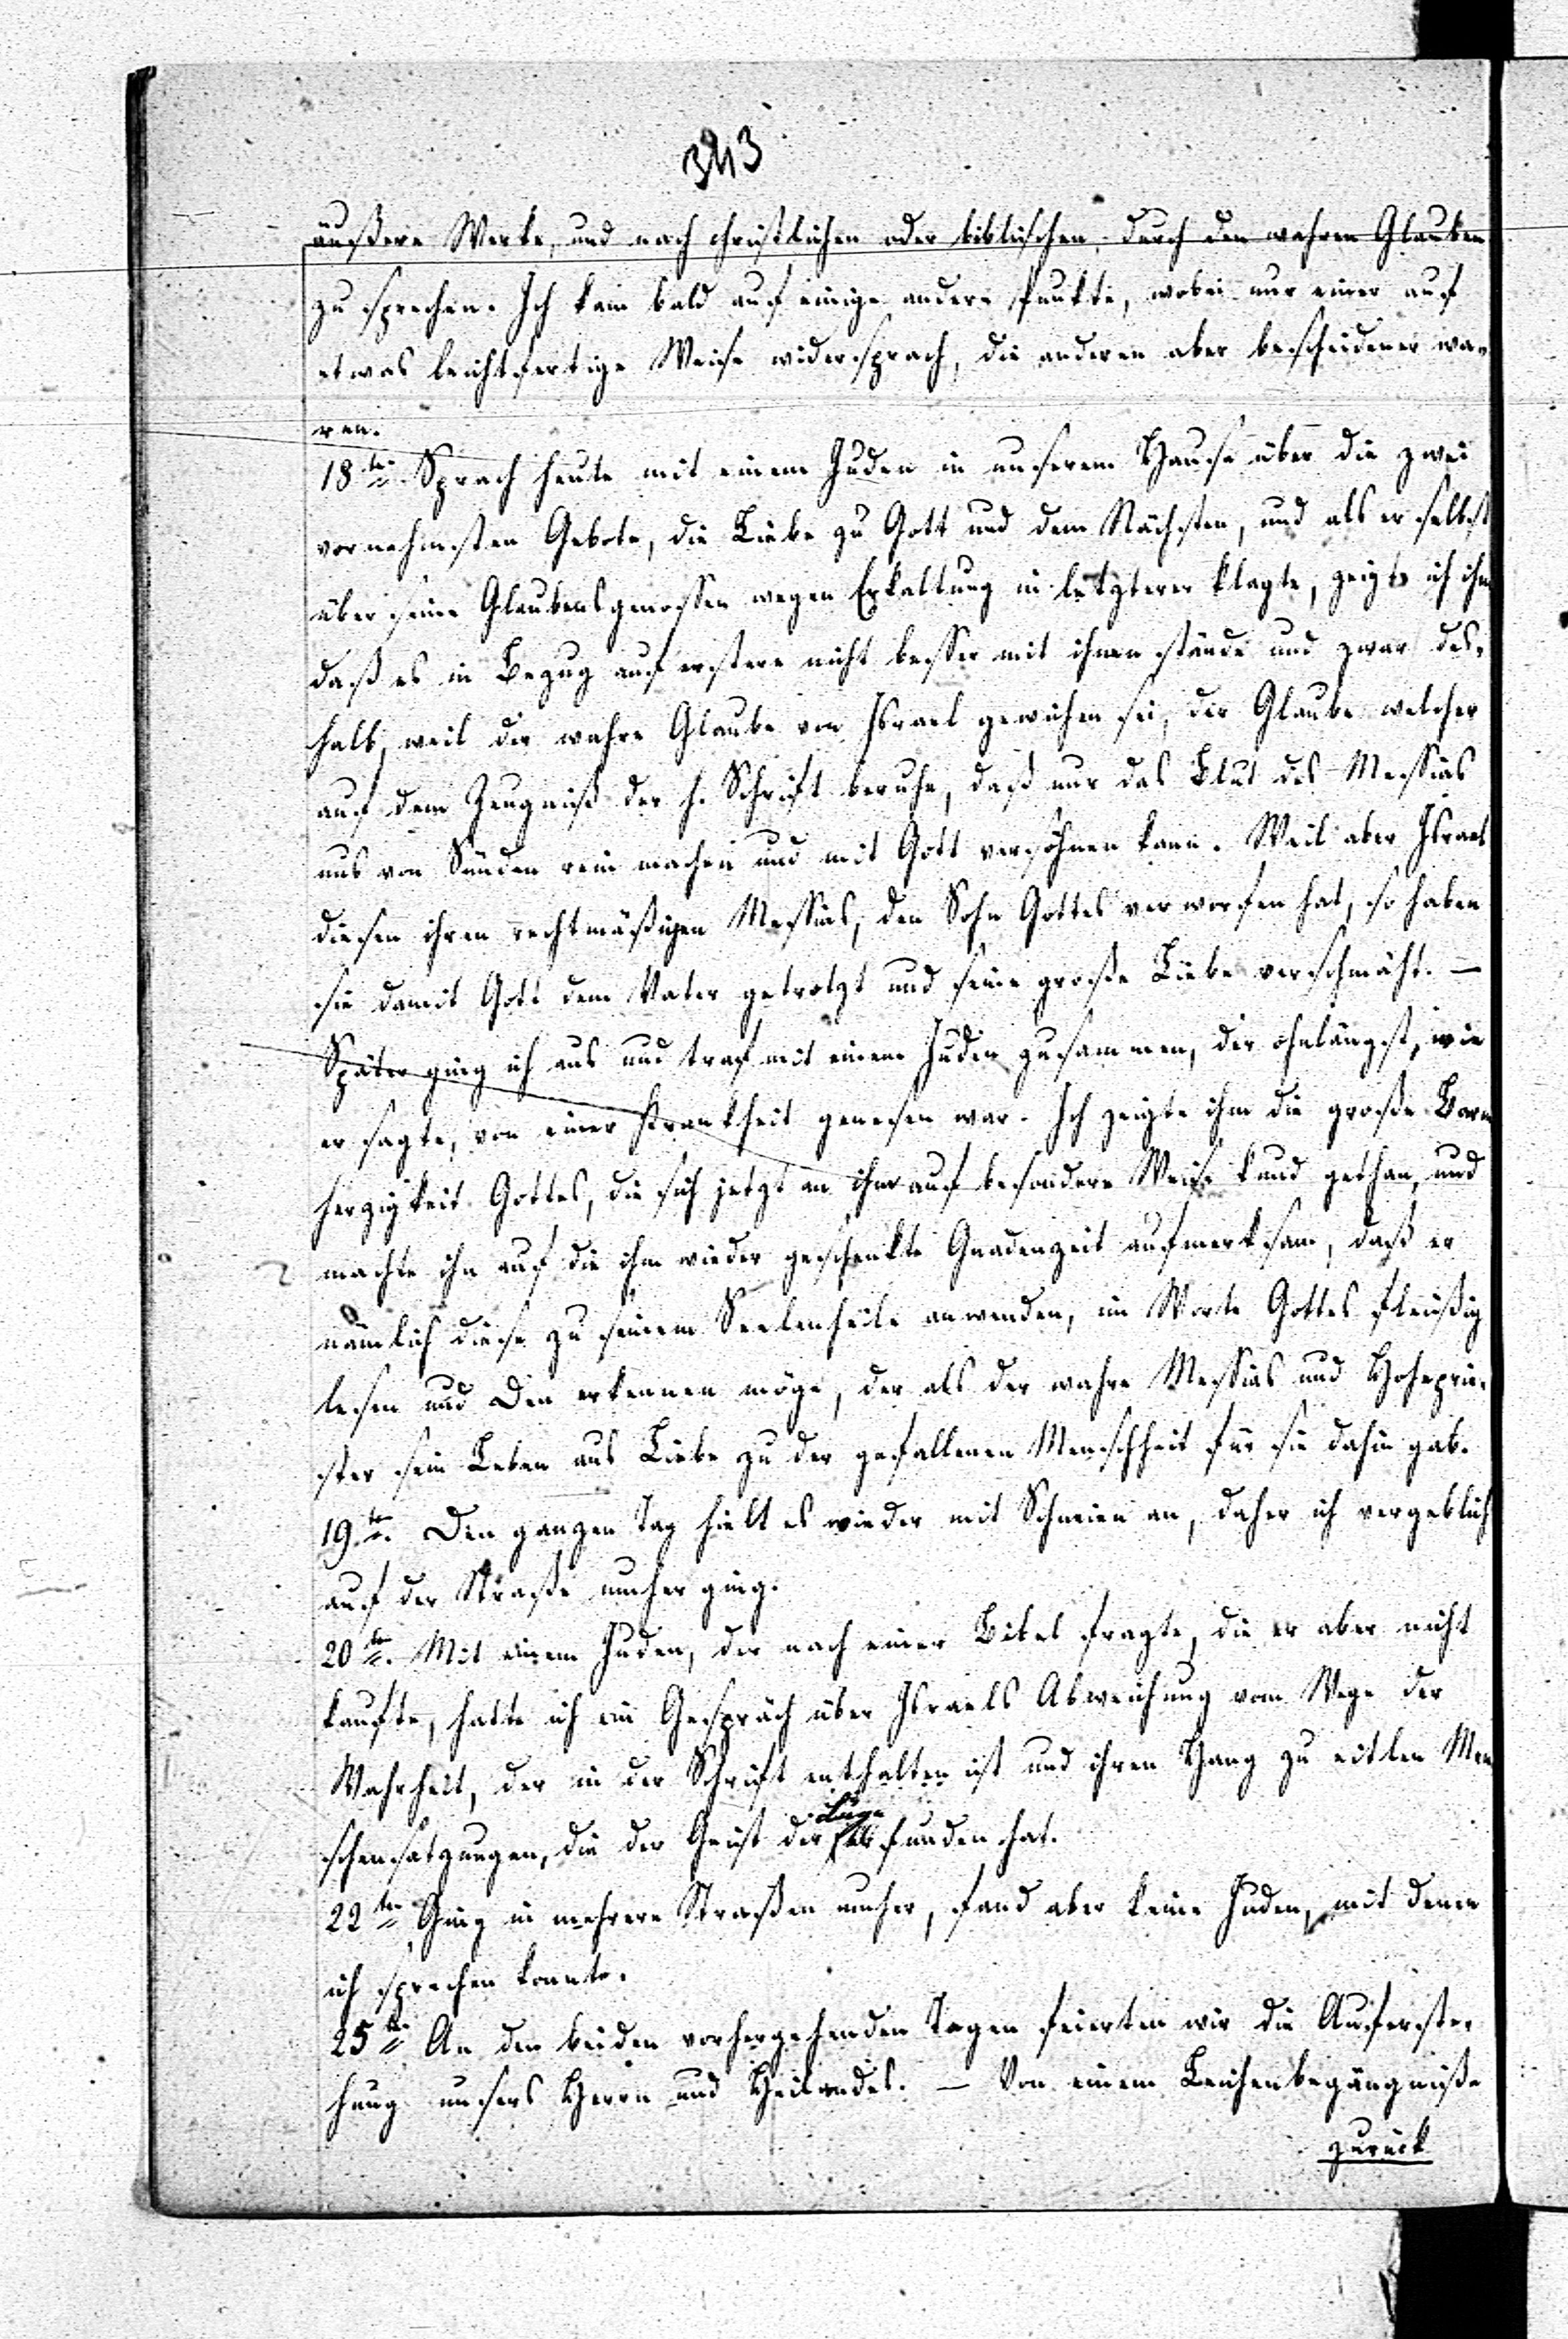 343
äußere Werke, und nach christlichen oder biblischen, durch den wahren Glauben
zu sprechen. Ich kam bald auf einige andere Punkte, wobei nur einer auf
etwas leichtfertige Weise widersprach, die anderen aber bescheidener wa-
ren.
18te. Sprach heute mit einem Juden in unserem Hause über die zwei
vornehmsten Gebote, die Liebe zu Gott und dem Nächsten, und als er selbst
über seine Glaubensgenossen wegen Erkaltung in letzterer klagte, zeigte ich ihm
daß es in Bezug auf erstere nicht besser mit ihnen stände und zwar des-
halb, weil der wahre Glaube von Israel gewichen sei, der Glaube welcher
auf dem Zeugniß der h. Schrift beruhe, daß nur das Blut des Messias
uns von Sünden rein machen und mit Gott versöhnen kann. Weil aber Israel
diesen ihren rechtmäßigen Messias, den Sohn Gottes verworfen hat, so haben
sie damit Gott dem Vater getrotzt und seine große Liebe verschmäht. —
Später ging ich aus und traf mit einem Juden zusammen, der ohnlängst, wie
er sagte, von einer Krankheit genesen war. Ich zeigte ihm die große Barm
herzigkeit Gottes, die sich jetzt an ihm auf besondere Weise kund gethan, und
machte ihn auf die ihm wieder geschenkte Gnadenzeit aufmerksam, daß er
nämlich diese zu seinem Seelenheile anwenden, im Worte Gottes fleißig
lesen und Den erkennen möge, der als der wahre Messias und Hoheprie-
ster sein Leben aus Liebe zu der gefallenen Menschheit für sie dahin gab.
19te. Den ganzen Tag hielt es wieder mit Schneien an, daher ich vergeblich
auf der Straße umher ging.
20te. Mit einem Juden, der nach einer Bibel fragte, die er aber nicht
kaufte, hatte ich ein Gespräch über Israels Abweichung vom Wege der
Wahrheit, der in der Schrift enthalten ist und ihren Hang zu eitlen Men
schensatzungen, die der Geist der Lüge erfunden hat.
22te Ging in mehrere Straßen umher, fand aber keine Juden, mit denen
ich sprechen konnte.
25te An den beiden vorhergehenden Tagen feierten wir die Auferste-
hung unsers Herrn und Heilandes. — Von einem Leichenbegängniße
zurück